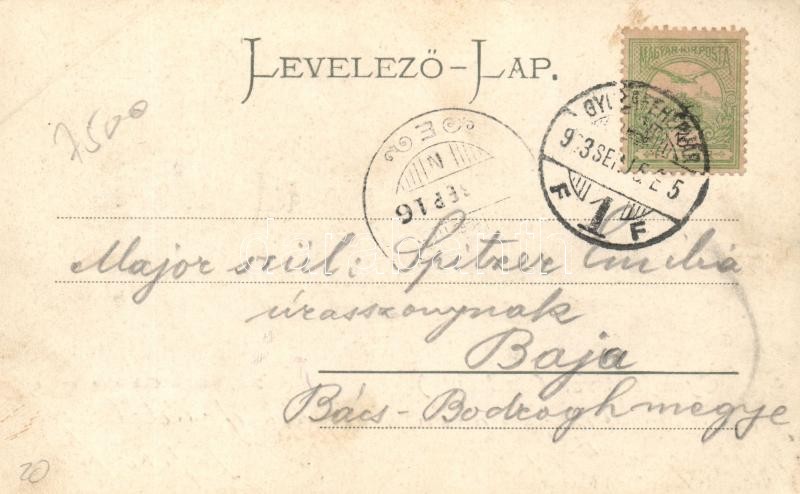 LEVELEZŐ-LAP.
MAGYAR·KIR·POSTA
7500
SEP 16
F 1 F
Major szül: Spitzer Emilia
úrasszonynak
Baja
Bács-Bodroghmegye
20